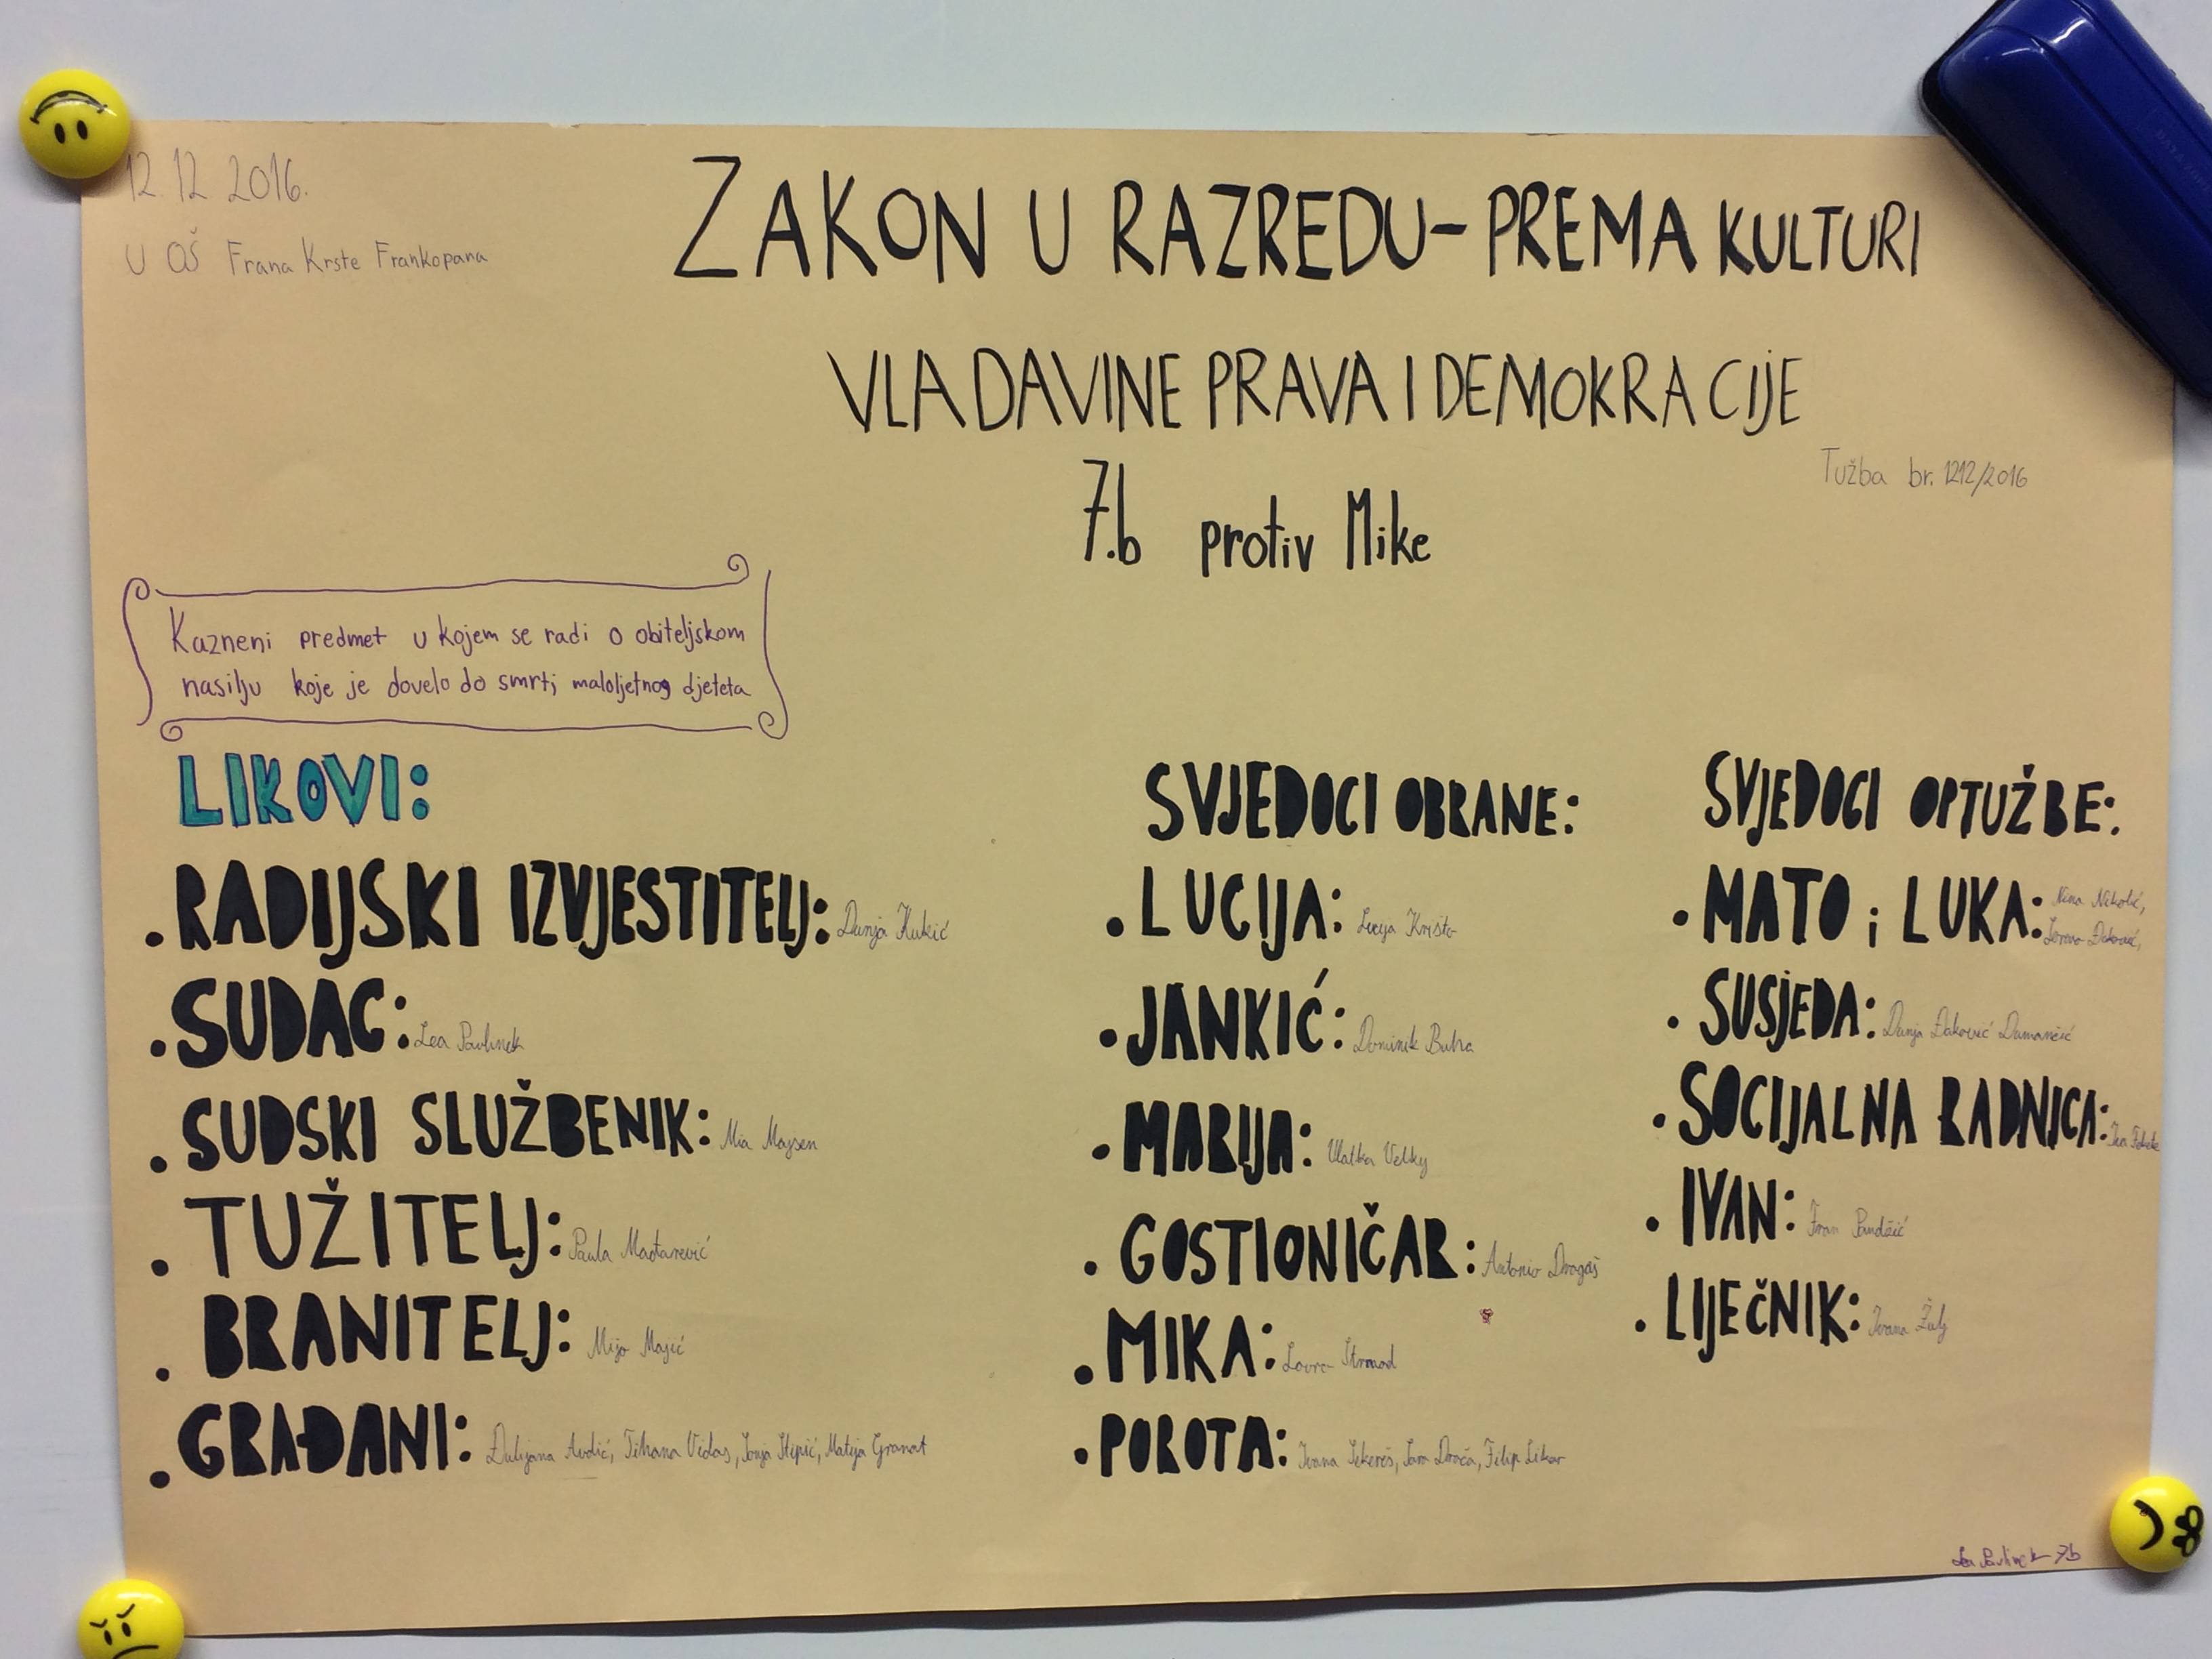 12. 12 2016.
U OŠ Frana Krste Frankopana
ZAKON U RAZREDU- PREMA KULTURI
VLADAVINE PRAVA I DEMOKRACIJE
Tužba br. 1212/2016
7.b protiv Mike
Kazneni predmet u kojem se radi o obiteljskom
nasilju koje je dovelo do smrti maloljetnog djeteta
LIKOVI:
• RADIJSKI IZVJESTITELJ: Dunja
• SUDAC: Lea Pavlinek
• SUDSKI SLUŽBENIK: Mia Majsen
• TUŽITELJ: Paula Mađarević
• BRANITELJ: Mijo Majić
• GRAĐANI: Đulijana Avdić, Tihana Vidas, Sonja Stipić, Matija Granat
SVJEDOCI OBRANE:
• LUCIJA: Lucija Krišto
• JANKIĆ: Dominik Buha
• MARIJA: Vlatka Velky
• GOSTIONIČAR: Antonio Dragaš
• MIKA: Lovro Strmad
• POROTA: Ivana Sekereš, Sara Drača, Filip Likar
SVJEDOCI OPTUŽBE:
• MATO i LUKA: Nina Nikolić,
• SUSJEDA: Dunja Đaković Damančić
• SOCIJALNA RADNICA: Iva
• IVAN: Fran Pandžić
• LIJEČNIK: Ivana
Lea Pavlinek 7b